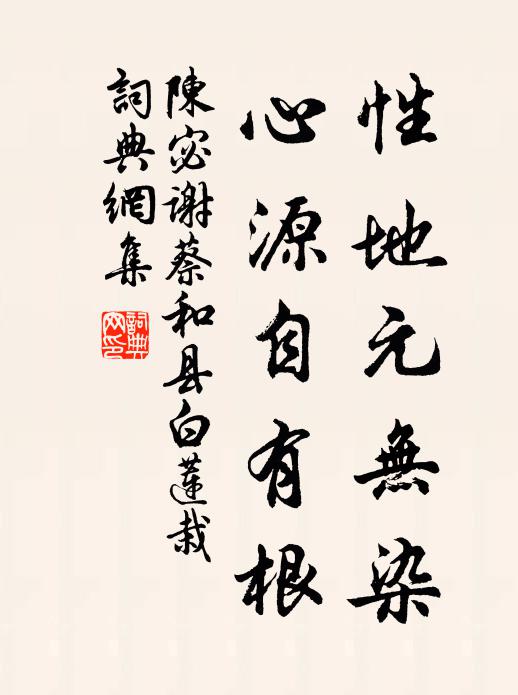 性地元無染
心源自有根
陳宓谢蔡和县白莲栽
詞典網集